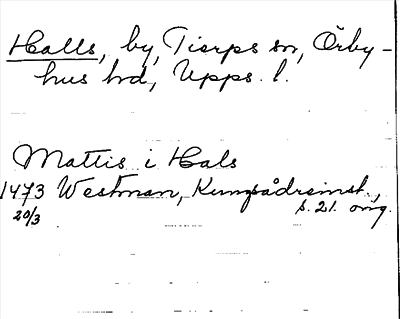 Halls, by, Tierps sn, Örby-
hus hd, Upps. l.
Mattis i Hals
1473 Westman, Kungsådreinst.,
20/3 s. 21. orig.